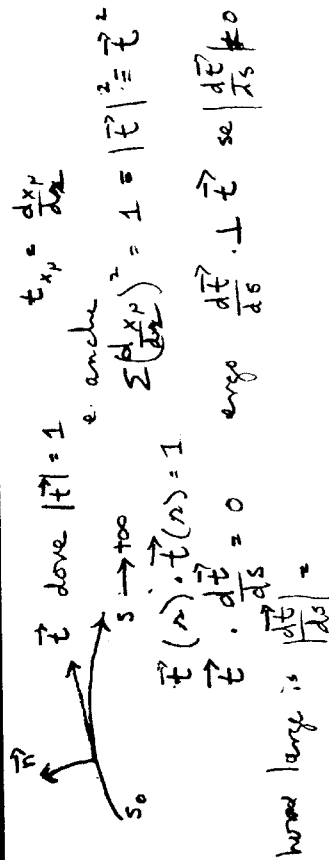 n⃗ t⃗ dove |t⃗| = 1 t_{xμ} = dx_μ/ds
s₀ s → +∞ e anche
Σ(dx_μ/ds)² = 1 = |t⃗|² = t⃗²
t⃗(s) · t⃗(s) = 1
t⃗ · dt⃗/ds = 0 ergo dt⃗/ds ⊥ t⃗ se |dt⃗/ds| ≠ 0
large is |dt⃗/ds| =